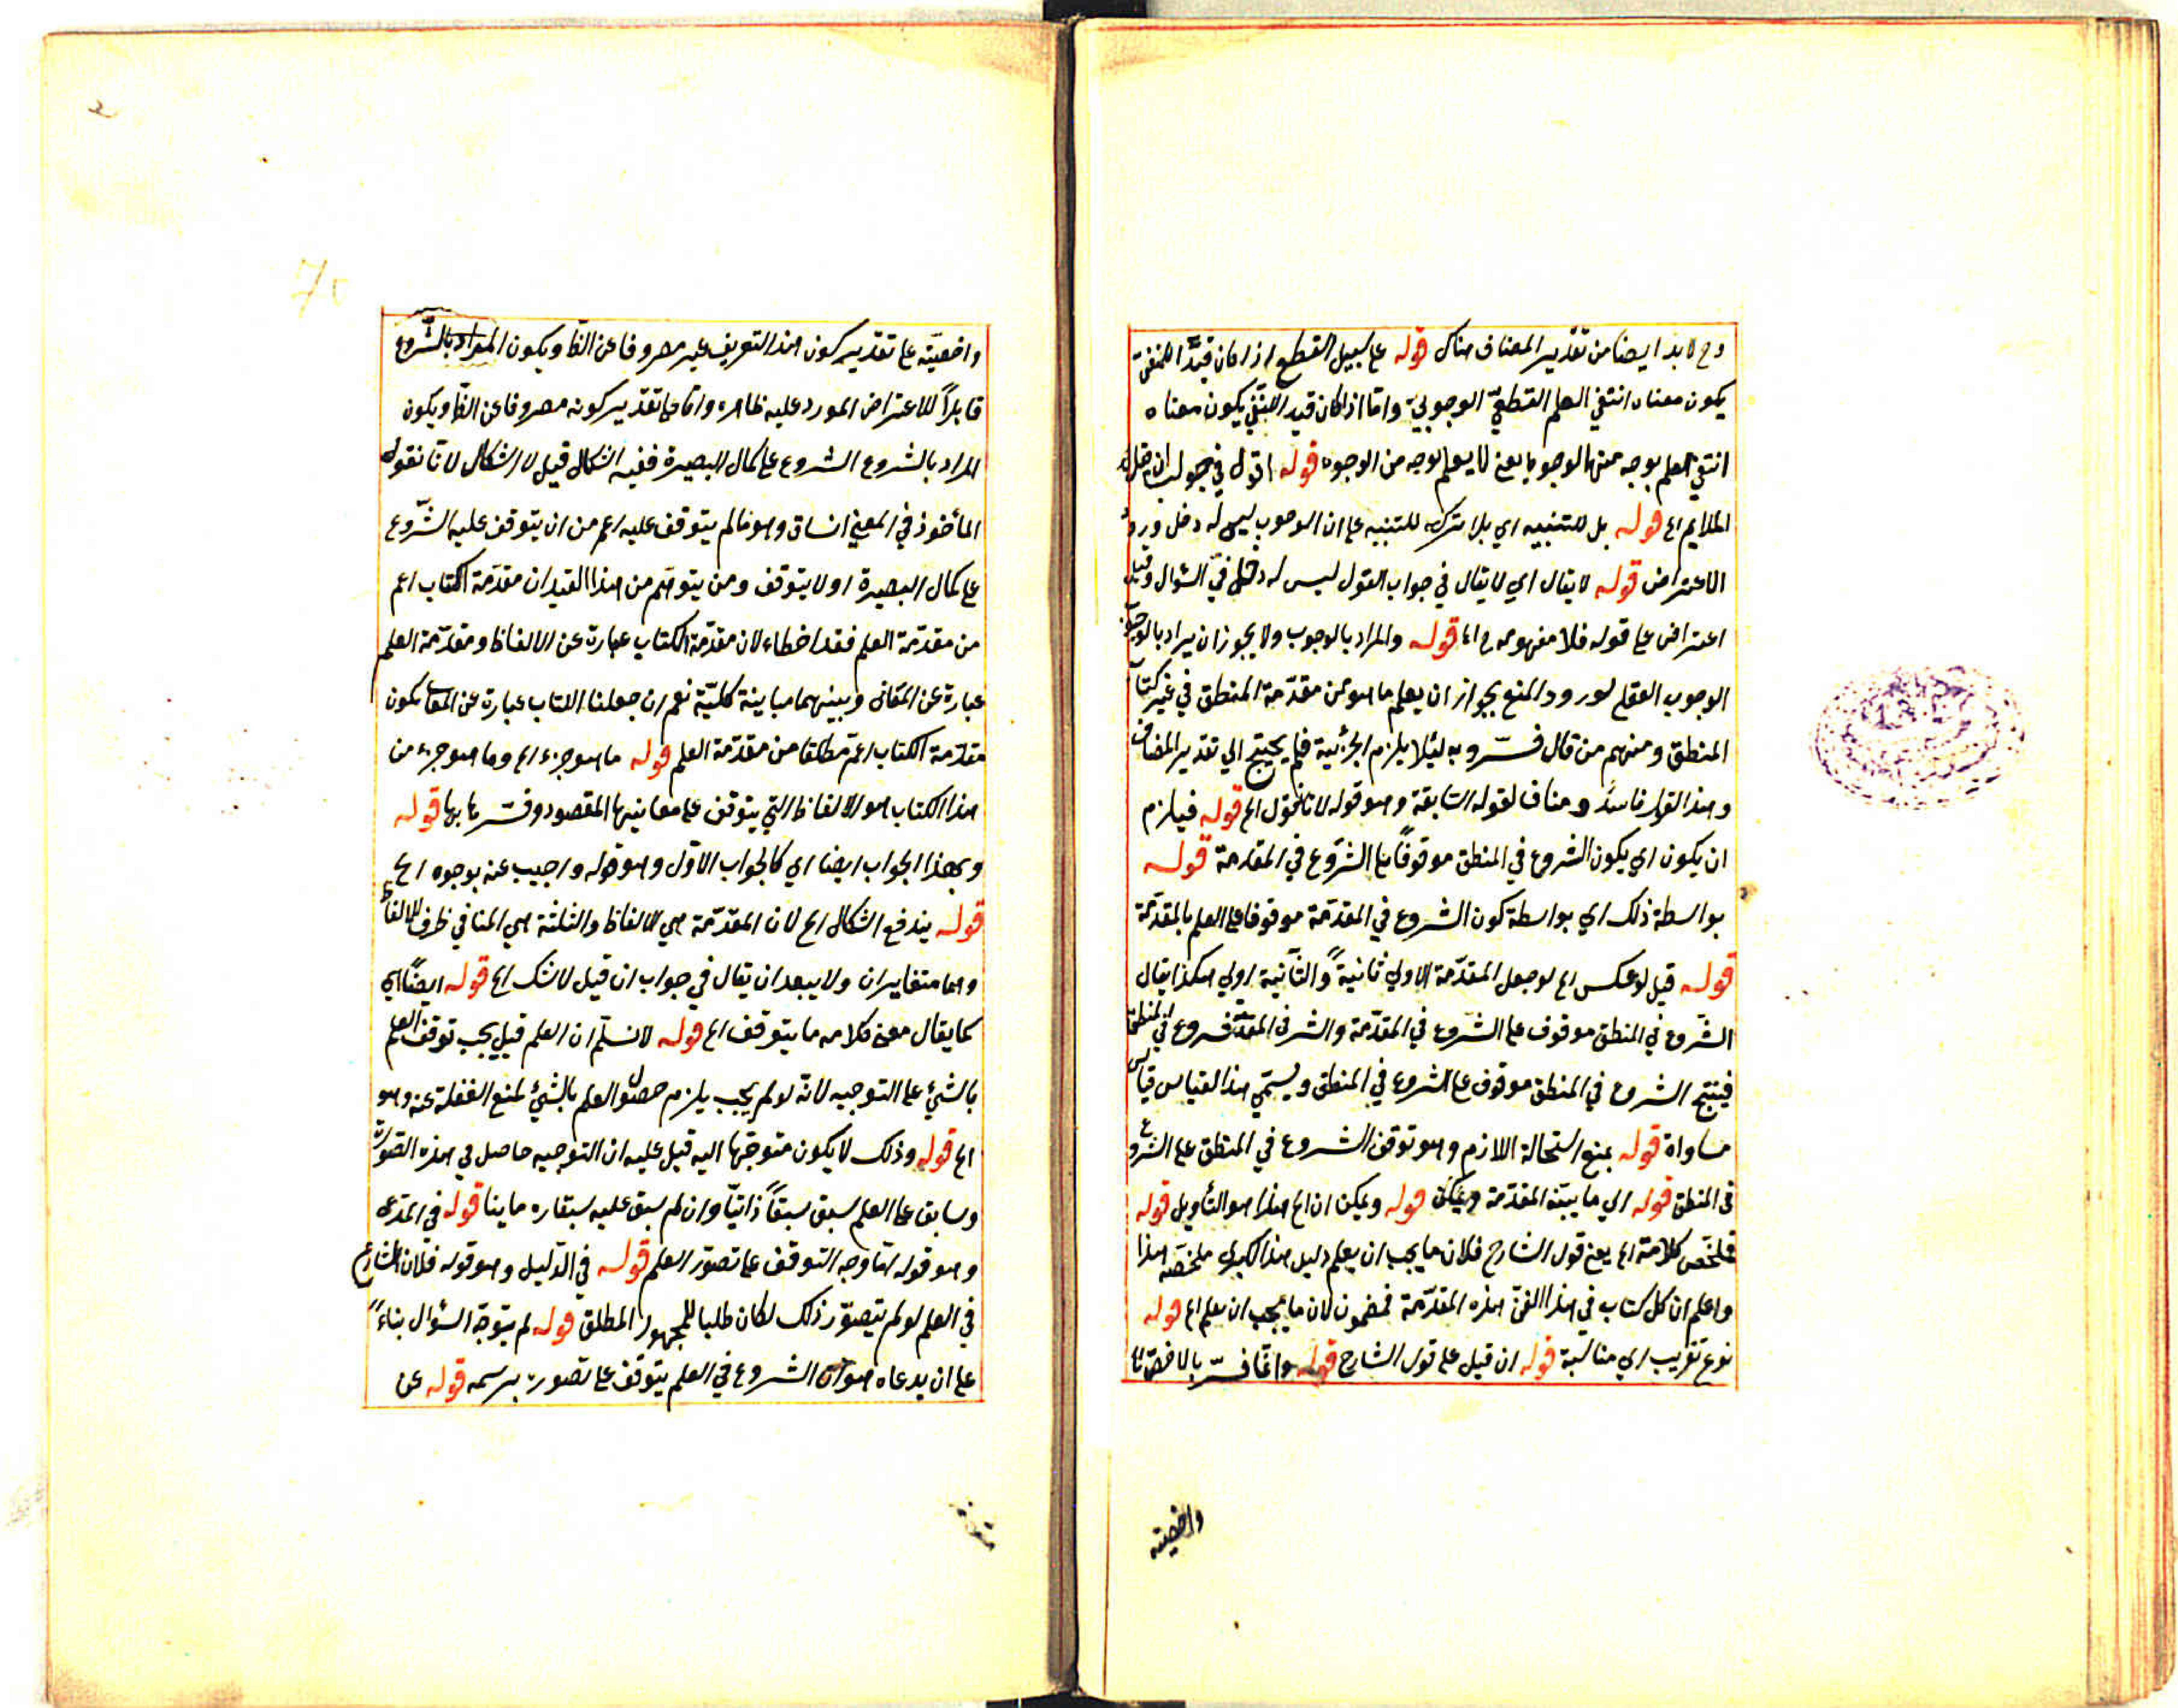 وح لا بد ايضا من تقدير المضاف هناك قوله على سبيل القطع اذا كان قيدا للمنفى
يكون معناه انتفى العلم القطعيّ الوجوبيّ واما اذا كان قيد النفى يكون معناه
انتفى العلم بوجه من الوجوه يعنى لا يعلم بوجه من الوجوه قوله اقول في جواب
الملايم الخ قوله بل للتنبيه اي بل اترك للتنبيه على ان الوجوب ليس له دخل ورود
الاعتراض قوله لا يقال اي لا يقال في جواب القول ليس له دخل في السؤال وقيل
اعتراض على قوله فلا مفهوم الخ قوله والمراد بالوجوب ولا يجوز ان يراد بالوجوب
الوجوب العقلى لورود المنع بجواز ان يعلم ما هو من مقدّمة المنطق في غير كتاب
المنطق ومنهم من قال فسّر وبه لئلا يلزم الجزئية فلم يحتج الى تقدير المضاف
وهذا القول فاسد ومناف لقوله السابقة وهو قوله لانا نقول الخ قوله فيلزم
ان يكون اي يكون الشروع في المنطق موقوفًا على الشروع في المقدمة قوله
بواسطة ذلك اي بواسطة كون الشروع في المقدّمة موقوفا على العلم بالمقدّمة
قوله قيل لو عكس الخ لو جعل المقدّمة الاولى ثانيةً والثانية اولى هكذا يقال
الشروع في المنطق موقوف على الشروع في المقدّمة والشروع في المقدّمة شروع في المنطق
فينتج الشروع في المنطق موقوف على الشروع في المنطق ويسمّي هذا القياس قياس
مساواة قوله بمنع استحالة اللازم وهو توقف الشروع في المنطق على الشروع
فى المنطق قوله اي ما يبيّنه المقدّمة قوله ويمكن ان الخ هذا هو التأويل قوله
فلخّص كلامه الخ يعنى قول الشارح فلان ما يجب ان يعلم دليل هذا الكبرى ملخصه هذا
واعلم ان كل كتاب في هذا الفنّ هذه المقدّمة فمضمون لان ما يجب ان يعلم الخ قوله
نوع تقريب اي مناسبة قوله ان قيل على قول الشارح قوله وانما فسّر بالاخصّ لا
واخصيته
واخصيّته على تقدير كون هذا التعريف غير مصروفا عن الظا ويكون المراد بالشروع
قابلاً للاعتراض المورد عليه ظاهر واما على تقدير كونه مصروفا عن الظا ويكون
المراد بالشروع الشروع على كمال البصيرة ففيه اشكال قيل لا اشكال لانا نقول
المأخوذ في المعنى الساق وهو ما لم يتوقف عليه اعم من ان يتوقف عليه الشّروع
على كمال البصيرة او لا يتوقف ومن يتوهّم من هذا القيد ان مقدّمة الكتاب اعم
من مقدّمة العلم فقد اخطاء لان مقدّمة الكتاب عبارة عن الالفاظ ومقدّمة العلم
عبارة عن المعانى وبينهما مباينة كليّة نعم ان جعلنا الكتاب عبارة عن المعانى يكون
مقدّمة الكتاب اعمّ مطلقا من مقدّمة العلم قوله ما هو جزء الخ وما هو جزء من
هذا الكتاب هو الالفاظ التي يتوقف على معانيها المقصود وفسّر بها قوله
وبهذا الجواب ايضا اي كالجواب الاوّل وهو قوله واجيب عنه بوجوه الخ
قوله يندفع اشكال الخ لان المقدّمة هي الالفاظ والثلثة هي المنافي ظرف للالفاظ
وهما متغايران ولا يبعد ان يقال في جواب ان قيل لا شك الخ قوله ايضًا اي
كما يقال معنى كلامه ما يتوقف الخ قوله لا نسلّم ان العلم قيل يجب توقف العلم
بالشئ على التوجيه لانّه لو لم يجب يلزم حصول العلم بالشئ لمنع الغفلة عنه وهو
الخ قوله وذلك لا يكون متوجّها اليه قيل عليه ان التوجيه حاصل في هذه الصّورة
وسابق على العلم سبق سبقاً ذاتيّا وان لم سبق عليه قوله في المدّعى
وهو قوله امّا وجه التوقف على تصوّر العلم قوله في الدّليل وهو قوله فلان الشارع
في العلم لو لم يتصوّر ذلك لكان طلبا للمجهول المطلق قوله لم يتوجّه السؤال بناءً
على ان مدعاه هو ان الشروع في العلم يتوقف على تصوره برسمه قوله عن